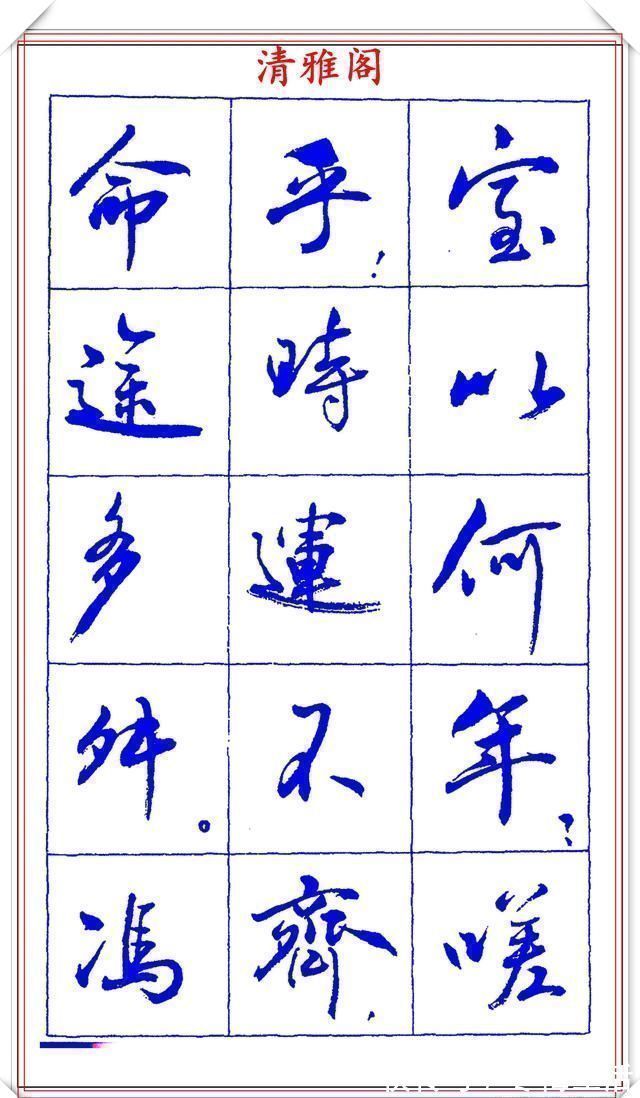 清雅阁
室以何年？嗟
乎！時運不齊，
命途多舛。馮